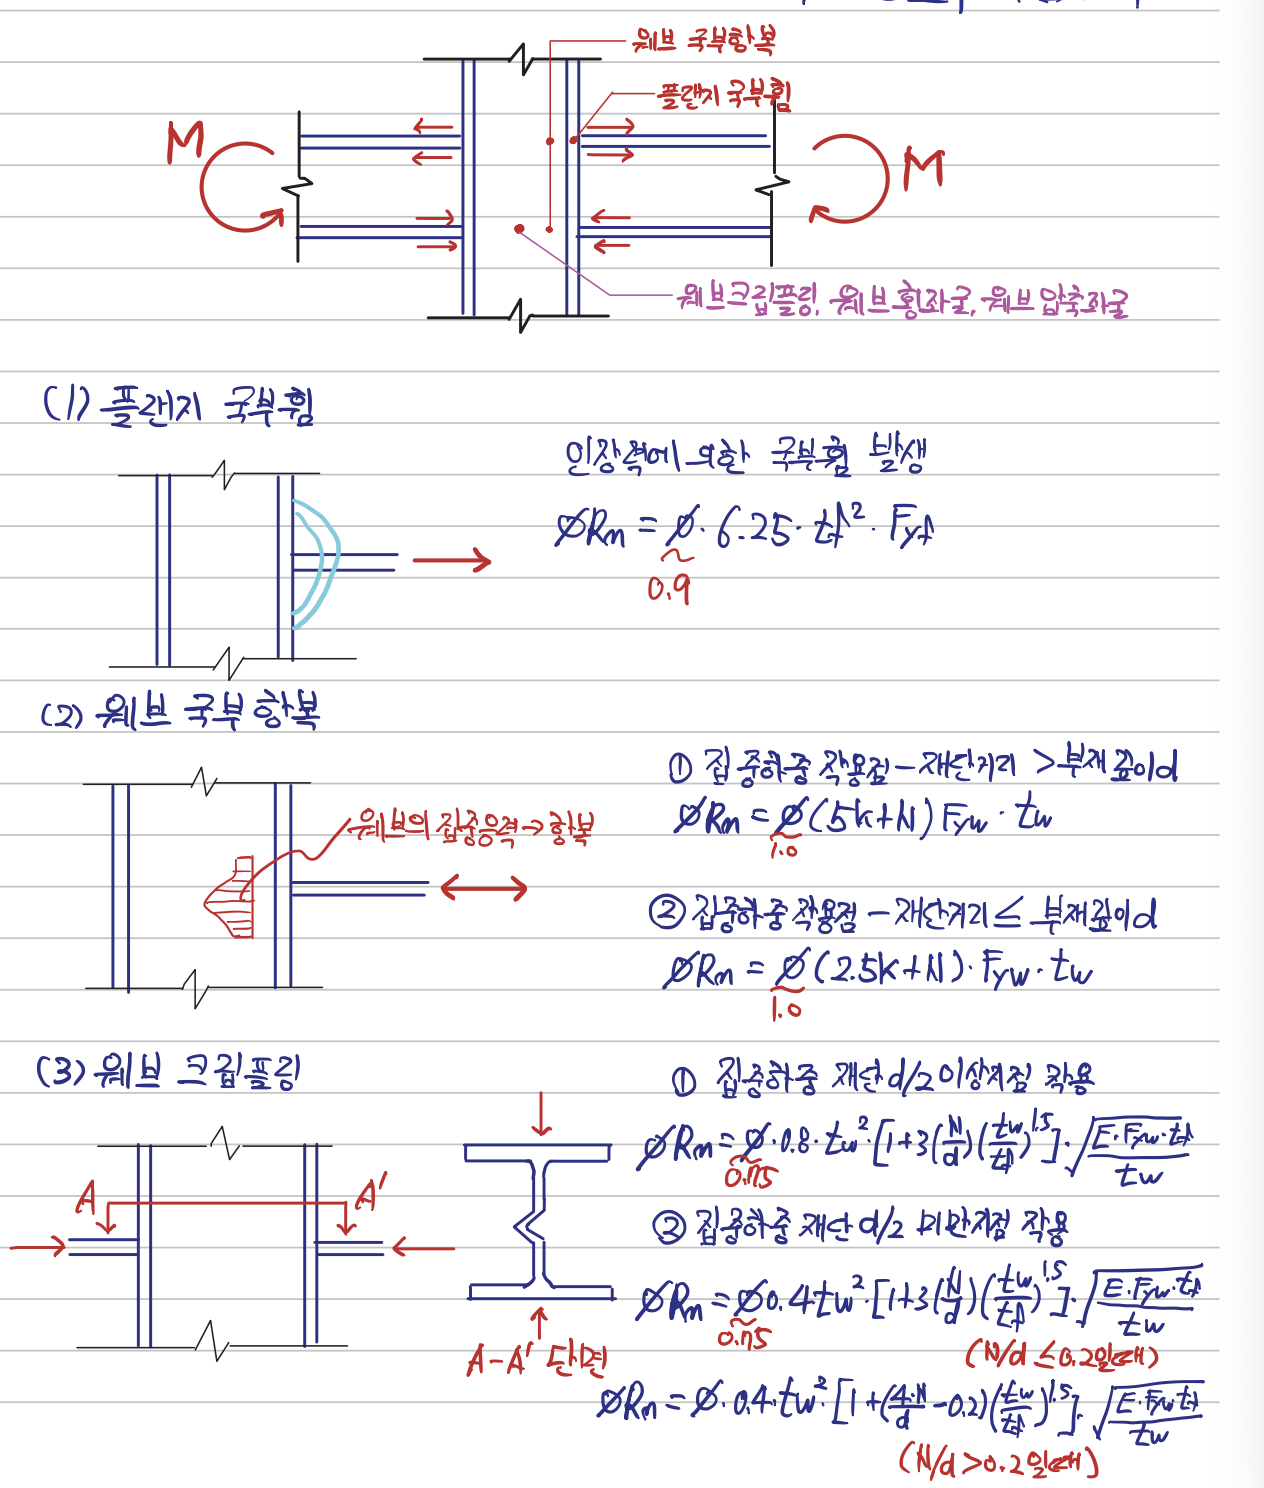 웨브 국부항복
플랜지 국부휨
M
M
웨브크립플링, 웨브 횡좌굴, 웨브 압축좌굴
(1) 플랜지 국부휨
인장력에 의한 국부휨 발생
ØRn = Ø · 6.25 · tf² · Fyf
0.9
(2) 웨브 국부 항복
① 집중하중 작용점 - 재단거리 > 부재 깊이d
ØRn = Ø(5k+N) Fyw · tw
1.0
웨브의 집중응력→항복
② 집중하중 작용점 - 재단거리 ≤ 부재깊이d
ØRn = Ø(2.5k+N) · Fyw · tw
1.0
(3) 웨브 크립플링
① 집중하중 재단d/2이상지점 작용
ØRn = Ø · 0.8 · tw² · [1+3(N/d)(tw/tf)^1.5] · √(E · Fyw · tf/tw)
0.75
A A'
② 집중하중 재단 d/2 미만지점 작용
ØRn = Ø0.4tw² · [1+3(N/d)(tw/tf)^1.5] · √(E · Fyw · tf/tw)
0.75
(N/d ≤0.2일때)
A-A' 단면
ØRn = Ø · 0.4 · tw² · [1+(4·N/d - 0.2)(tw/tf)^1.5] · √(E · Fyw · tf/tw)
(N/d >0.2일때)